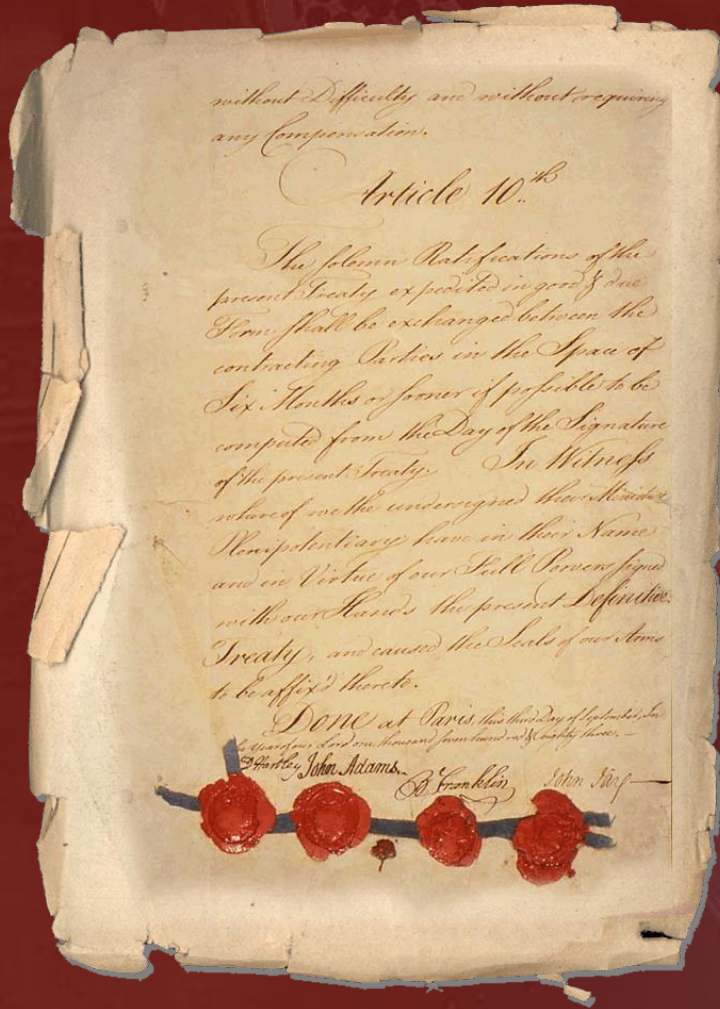 without Difficulty and without requiring
any Compensation.
Article 10.th
The solemn Ratifications of the
present Treaty expedited in good & due
Form shall be exchanged between the
contracting Parties in the Space of
Six Months or sooner if possible to be
computed from the Day of the Signature
of the present Treaty. In Witness
whereof we the undersigned their Ministers
Plenipotentiary have in their Name
and in Virtue of our Full Powers signed
with our Hands the present Definitive
Treaty, and caused the Seals of our Arms
to be affix'd thereto.
Done at Paris, this third Day of September, In
the Year of our Lord one thousand seven hundred & eighty three.—
D Hartley John Adams. B Franklin John Jay—